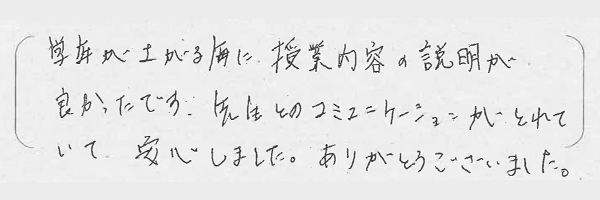 学年が上がる毎に、授業内容の説明が
良かったです。先生とのコミュニケーションがとれて
いて、安心しました。ありがとうございました。